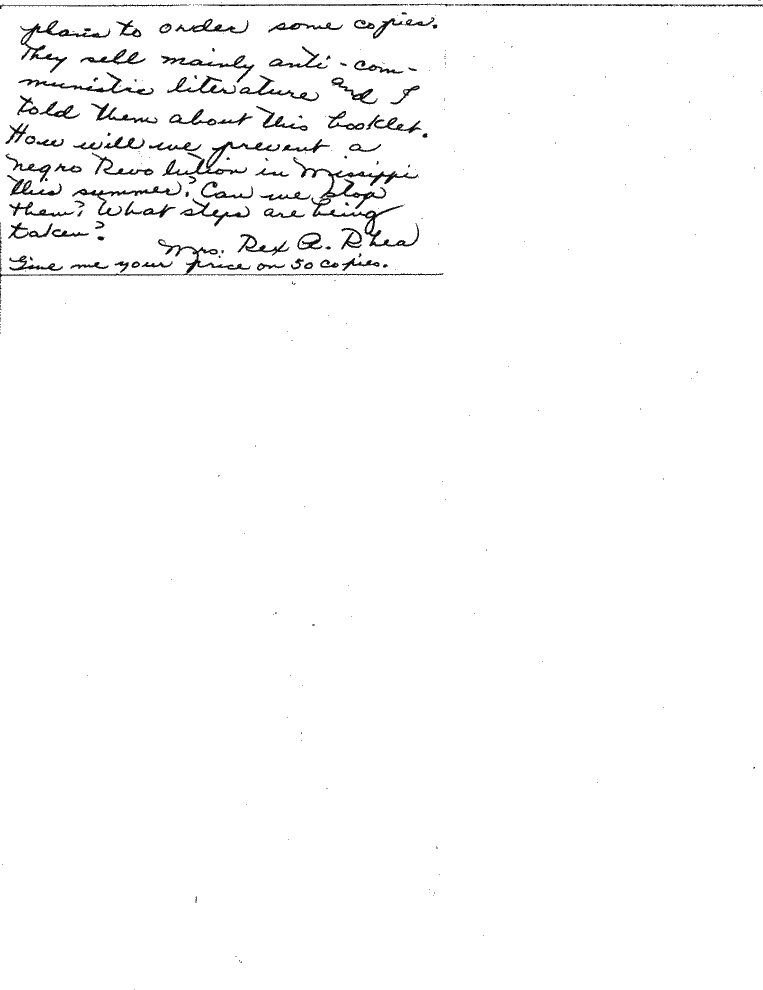 plans to order some copies.
They sell mainly anti-com-
munistic literature and I
told them about this booklet.
How will we prevent a
negro Revolution in Missippi
this summer? Can we stop
them? What steps are being
taken?
Mrs. Rex A. Rhea
Give me your price on 50 copies.